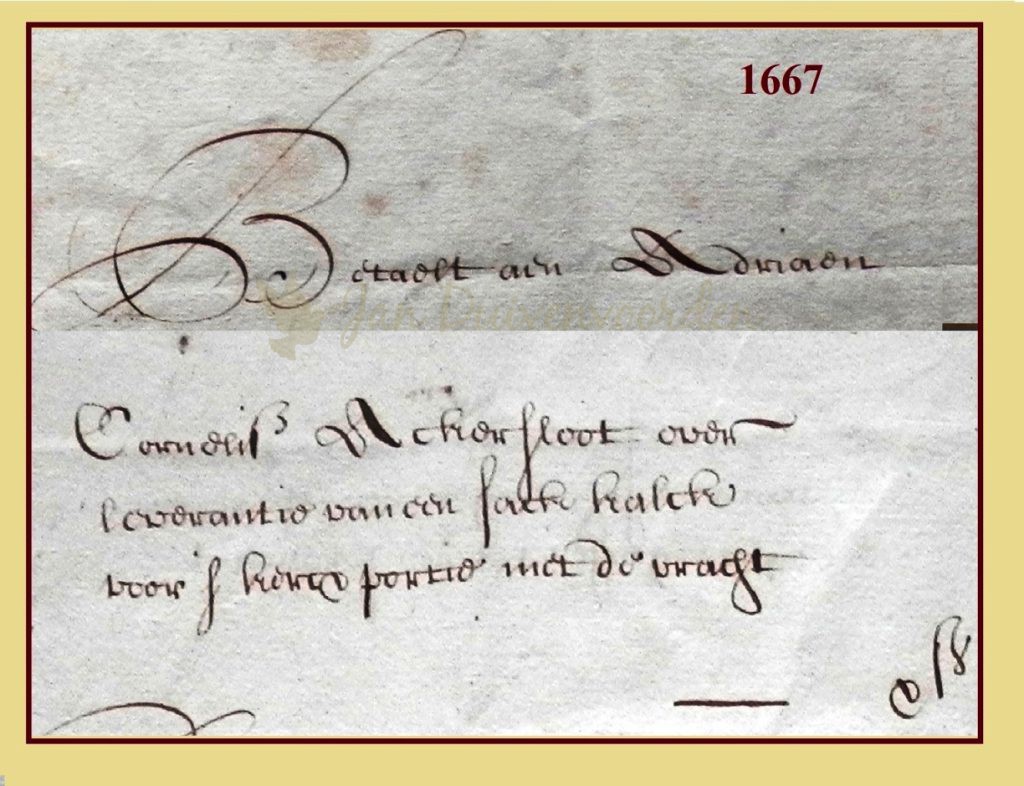 1667
Betaelt aen Adriaen
Corneliss Ackersloot over
leverantie van een sack kalck
voor s kercx portie met de vracht